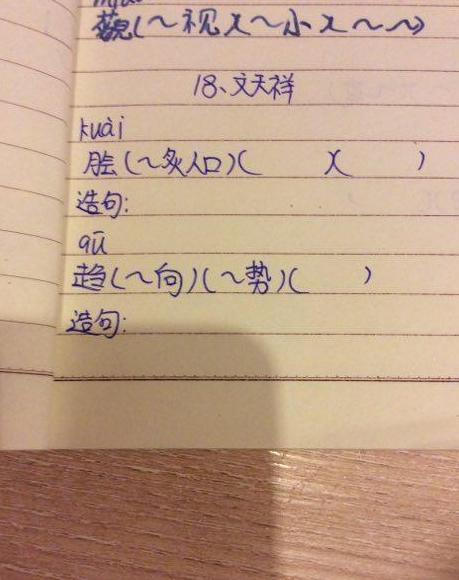 藐(～视)(～小)(～～)
18、文天祥
kuài
脍(～炙人口)(　　)(　　)
造句:
qū
趋(～向)(～势)(　　)
造句: